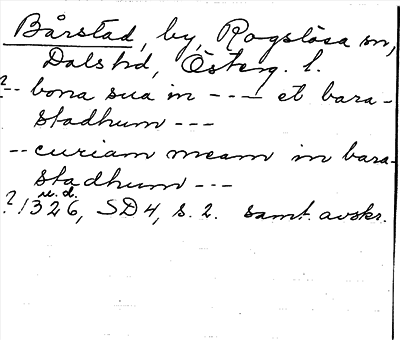 Bårstad, by, Rogslösa sn,
Dals hd, Österg. l.
?-- bona sua in ---- et bara-
stadhum ---
-- curiam meam in bara-
stadhum ---
u. d.
? 1326, SD 4, s. 2. samt. avskr.